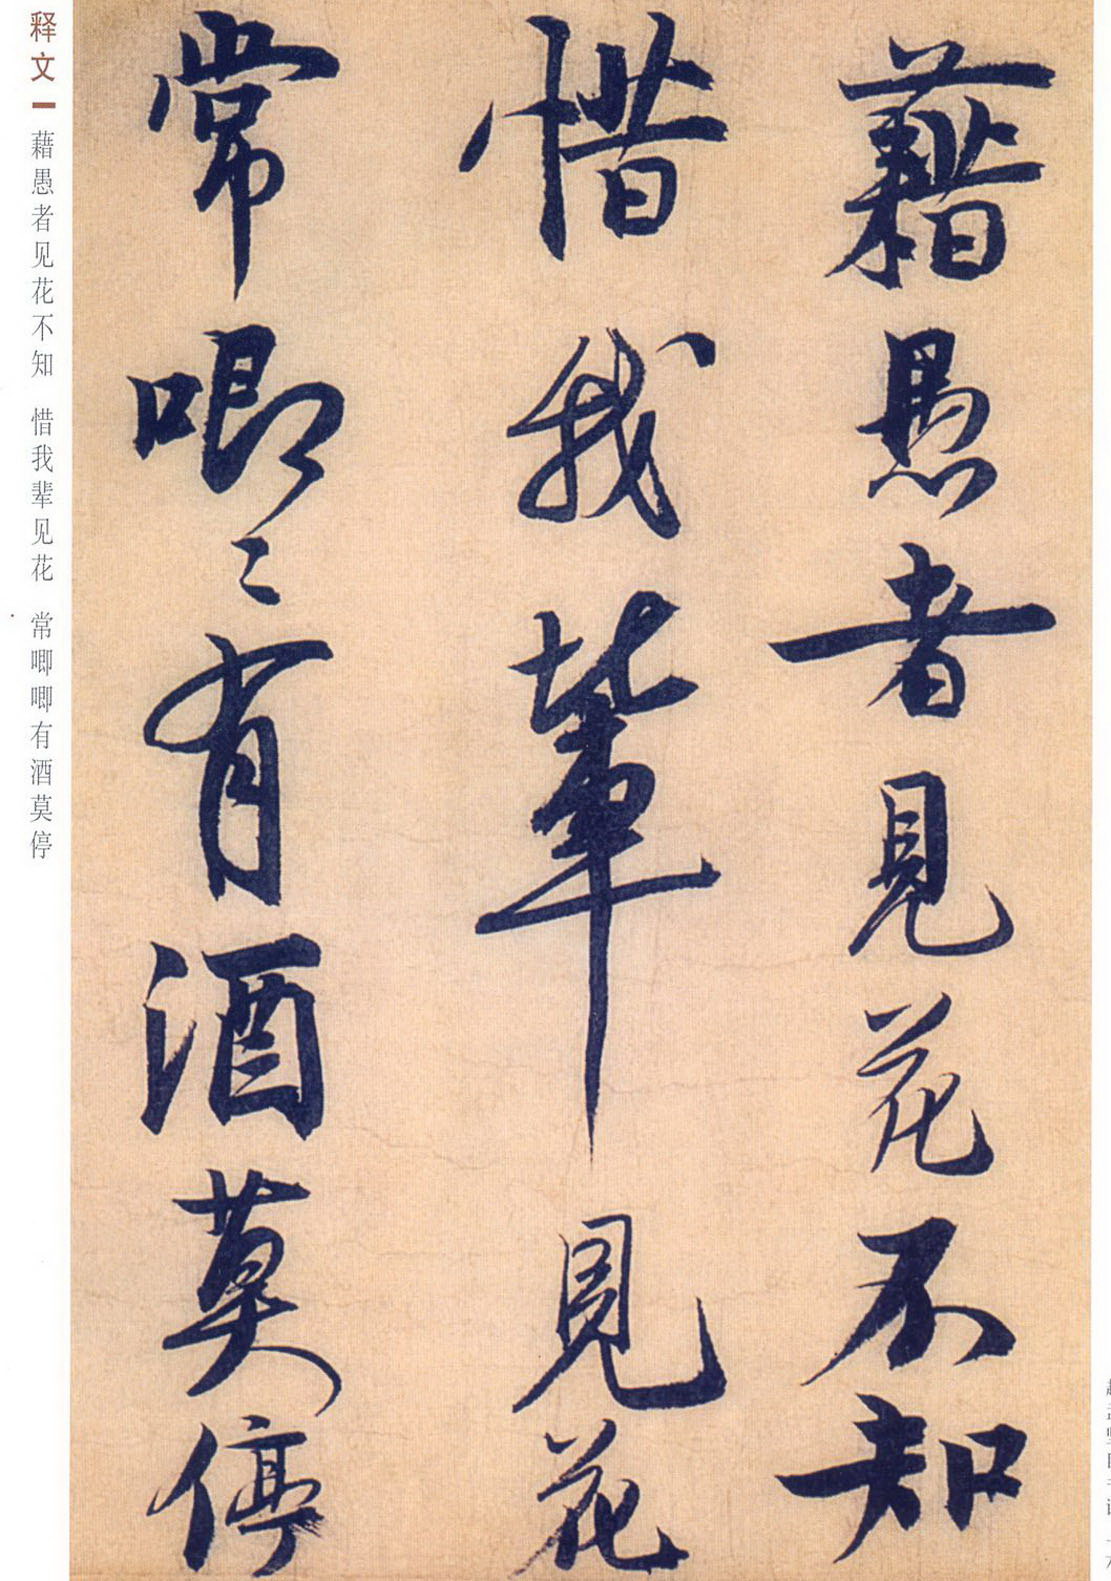 藉愚者見花不知
惜我輩見花
常唧〻有酒莫停
释文
藉愚者见花不知 惜我辈见花 常唧唧有酒莫停